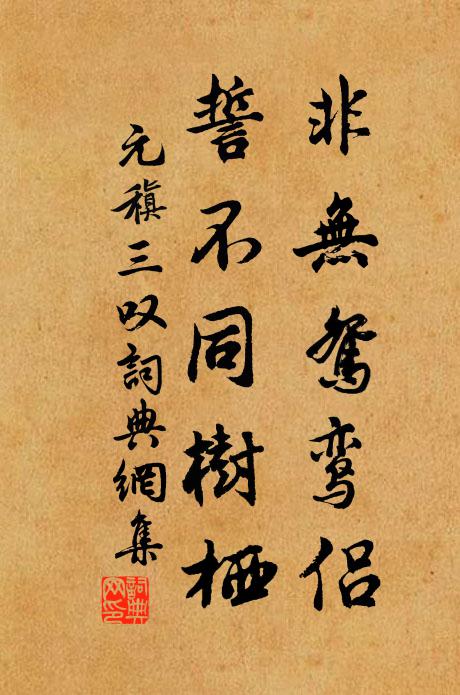 非無鴛鸾侣
誓不同樹栖
元稹三叹詞典網集
詞典網印